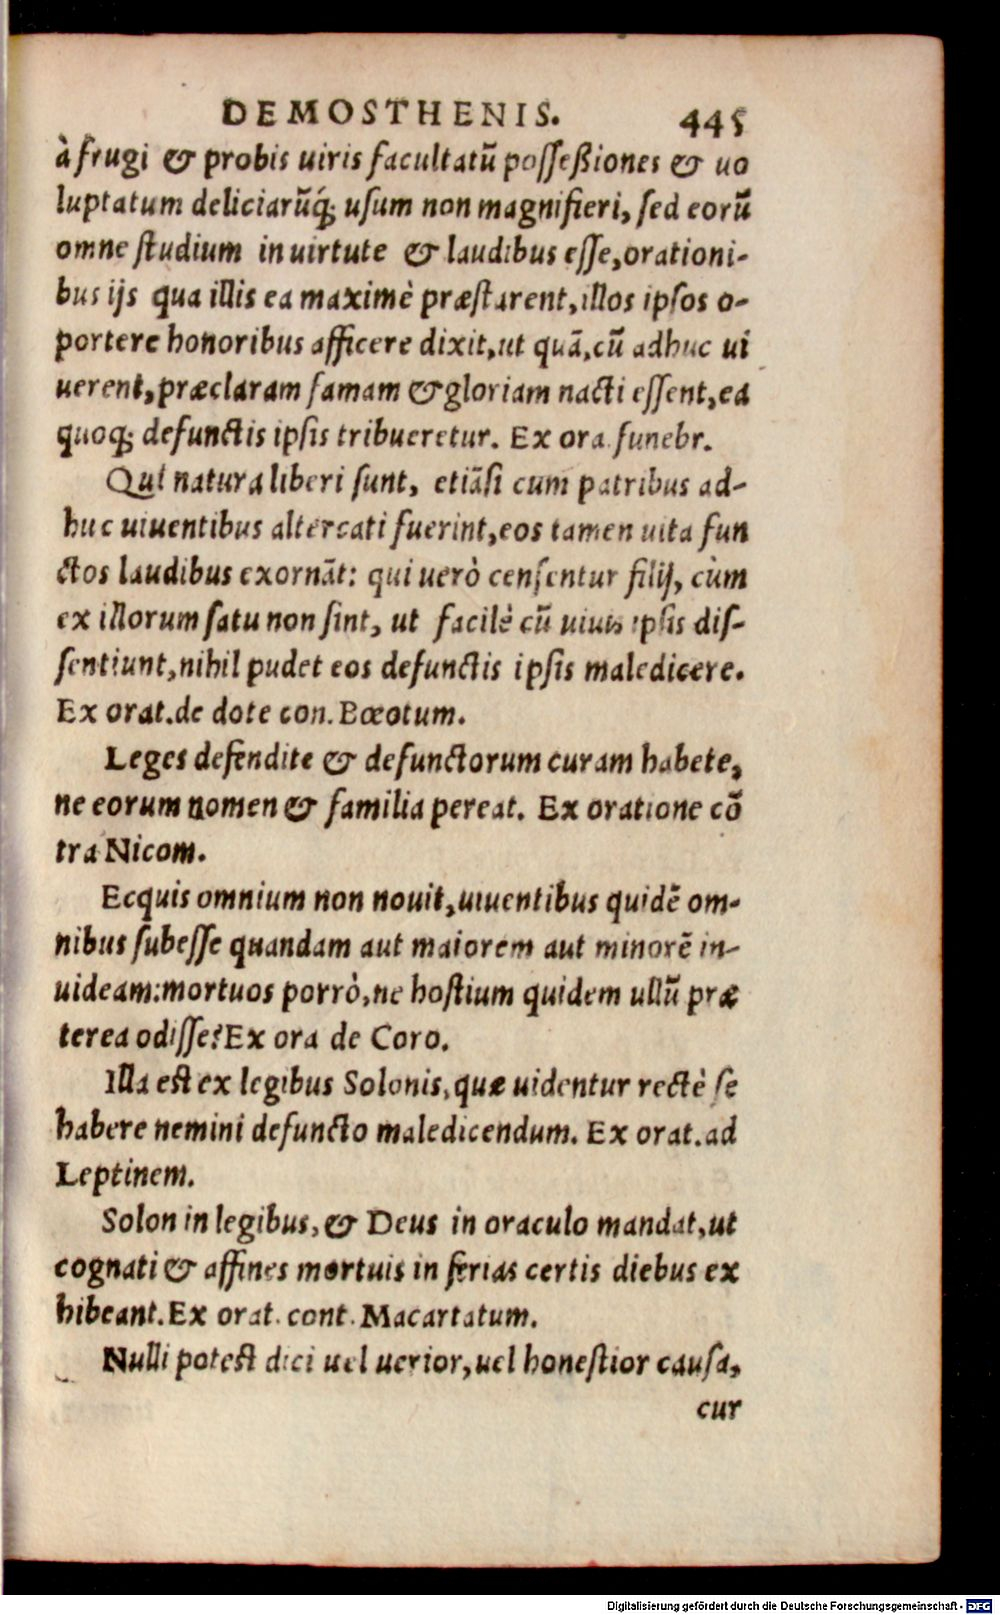 DEMOSTHENIS. 445
à frugi & probis uiris facultatũ possessiones & uo
luptatum deliciarũq́; usum non magnifieri, sed eorũ
omne studium in uirtute & laudibus esse, orationi-
bus ijs qua illis ea maximè præstarent, illos ipsos o-
portere honoribus afficere dixit, ut quã, cũ adhuc ui
uerent, præclaram famam & gloriam nacti essent, ea
quoq; defunctis ipsis tribueretur. Ex ora. funebr.
Qui natura liberi sunt, etiãsi cum patribus ad-
huc uiuentibus altercati fuerint, eos tamen uita fun
ctos laudibus exornãt: qui uerò censentur filij, cùm
ex illorum satu non sint, ut facilè cũ uiuis ipsis dis-
sentiunt, nihil pudet eos defunctis ipsis maledicere.
Ex orat. de dote con. Bœotum.
Leges defendite & defunctorum curam habete,
ne eorum nomen & familia pereat. Ex oratione cõ
tra Nicom.
Ecquis omnium non nouit, uiuentibus quidẽ om-
nibus subesse quandam aut maiorem aut minorẽ in-
uideam: mortuos porrò, ne hostium quidem ullũ præ
terea odisse? Ex ora de Coro.
Illa est ex legibus Solonis, quæ uidentur rectè se
habere nemini defuncto maledicendum. Ex orat. ad
Leptinem.
Solon in legibus, & Deus in oraculo mandat, ut
cognati & affines mortuis in ferias certis diebus ex
hibeant. Ex orat. cont. Macartatum.
Nulli potest dici uel uerior, uel honestior causa,
cur
Digitalisierung gefördert durch die Deutsche Forschungsgemeinschaft - DFG